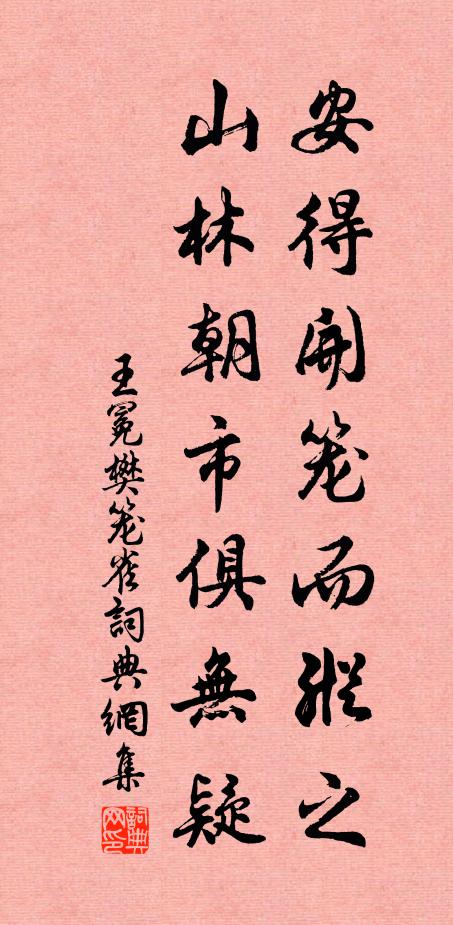 安得開笼而縱之
山林朝市俱無疑
王冕樊笼雀詞典網集
詞典网印